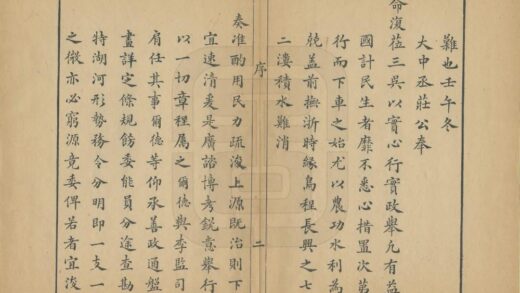 難也壬午冬
大中丞莊公奉
命復莅三吳以實心行實政舉凡有益
國計民生者靡不悉心措置次第
行而下車之始尤以農功水利為
兢蓋前撫浙時緣烏程長興之七
二漊積水難消
序
二
奏准酌用民力疏浚上源既治則下
宜速清爰是廣諮博考銳意舉行
以一切章程屬之爾德與李監司
肩任其事爾德等仰承善政通盤
畫詳定條規飭委能員分途查勘
特湖河形勢務令分明即一支一
之微亦必窮源竟委俾若者宜浚